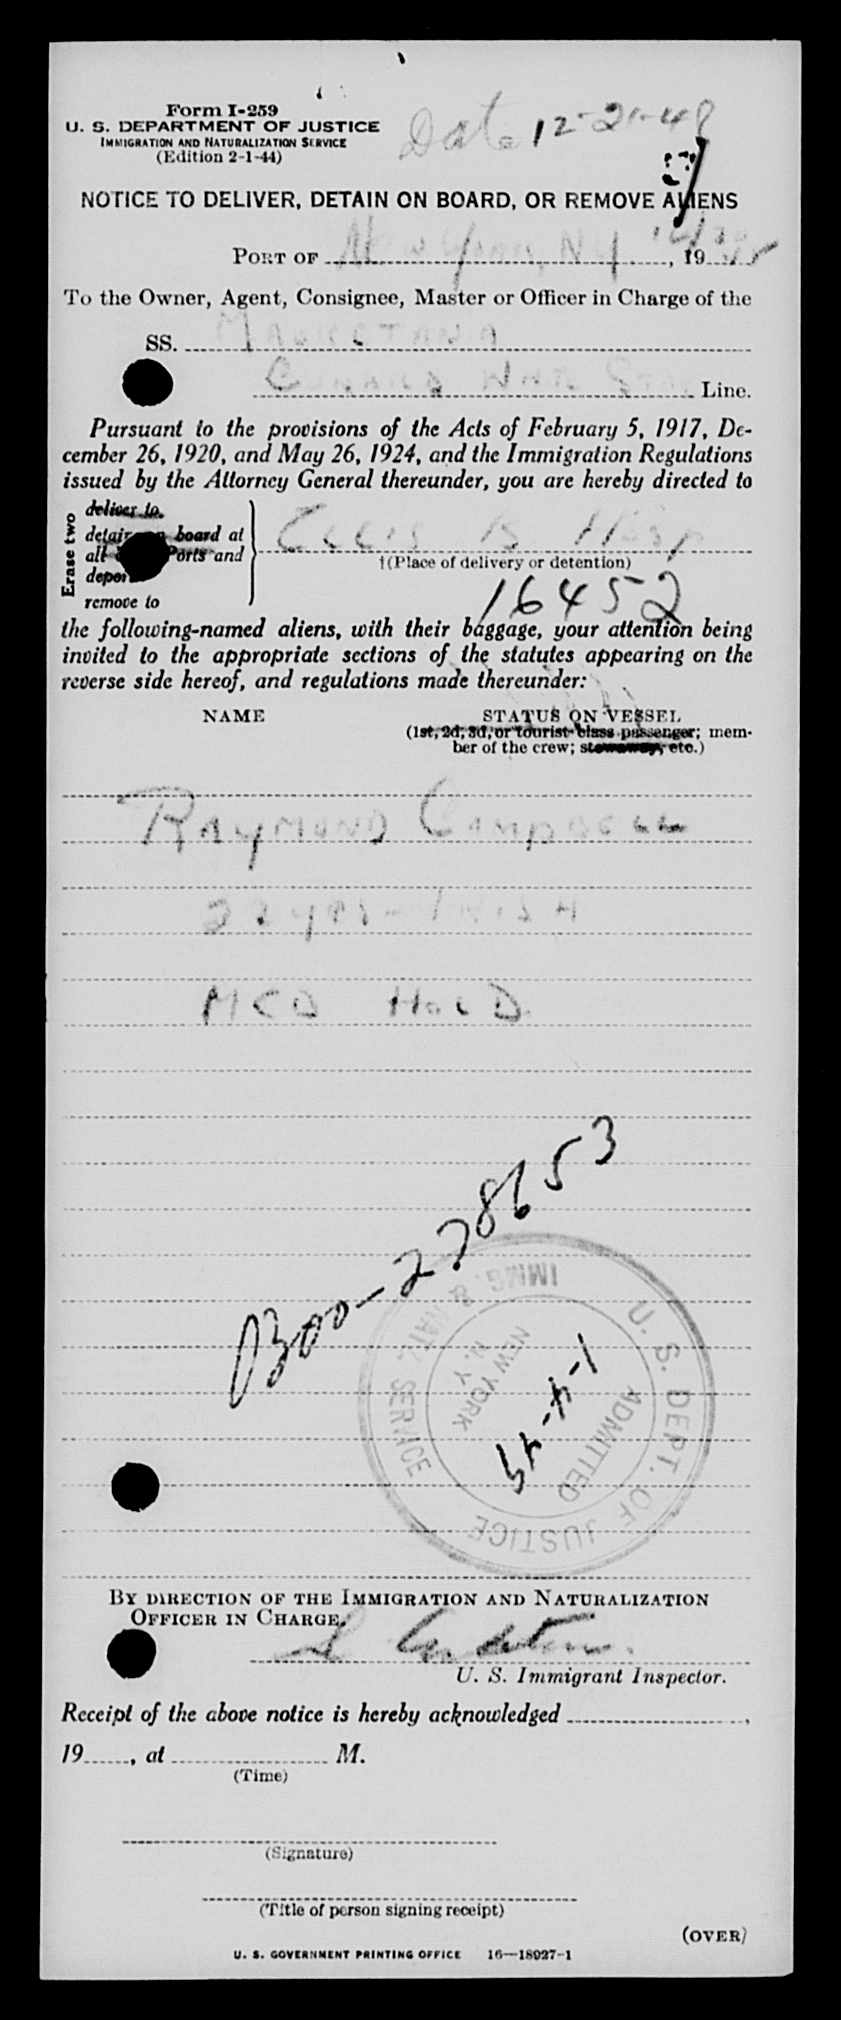 Form I-259
Date 12-21-48
U. S. DEPARTMENT OF JUSTICE
IMMIGRATION AND NATURALIZATION SERVICE
(Edition 2-1-44)
NOTICE TO DELIVER, DETAIN ON BOARD, OR REMOVE ALIENS
PORT OF New York, N.Y. , 19
To the Owner, Agent, Consignee, Master or Officer in Charge of the
SS. MAURETANIA
CUNARD WHITE STAR Line.
Pursuant to the provisions of the Acts of February 5, 1917, De-
cember 26, 1920, and May 26, 1924, and the Immigration Regulations
issued by the Attorney General thereunder, you are hereby directed to
Erase two
deliver to
detain on board at
all Ports and
deport
remove to
ELLIS IS Hosp
†(Place of delivery or detention)
16452
the following-named aliens, with their baggage, your attention being
invited to the appropriate sections of the statutes appearing on the
reverse side hereof, and regulations made thereunder:
NAME STATUS ON VESSEL
(1st, 2d, 3d, or tourist-class passenger; mem-
ber of the crew; stowaway, etc.)
RAYMOND CAMPBELL
22 yrs - IRISH
MCD HOLD
0300-278653
U. S. DEPT. OF JUSTICE
IMMG. & NATZ. SERVICE
ADMITTED
1-4-49
NEW YORK
N. Y.
BY DIRECTION OF THE IMMIGRATION AND NATURALIZATION
OFFICER IN CHARGE.
U. S. Immigrant Inspector.
Receipt of the above notice is hereby acknowledged ,
19 , at M.
(Time)
(Signature)
(Title of person signing receipt)
(OVER)
U. S. GOVERNMENT PRINTING OFFICE 16—18927-1